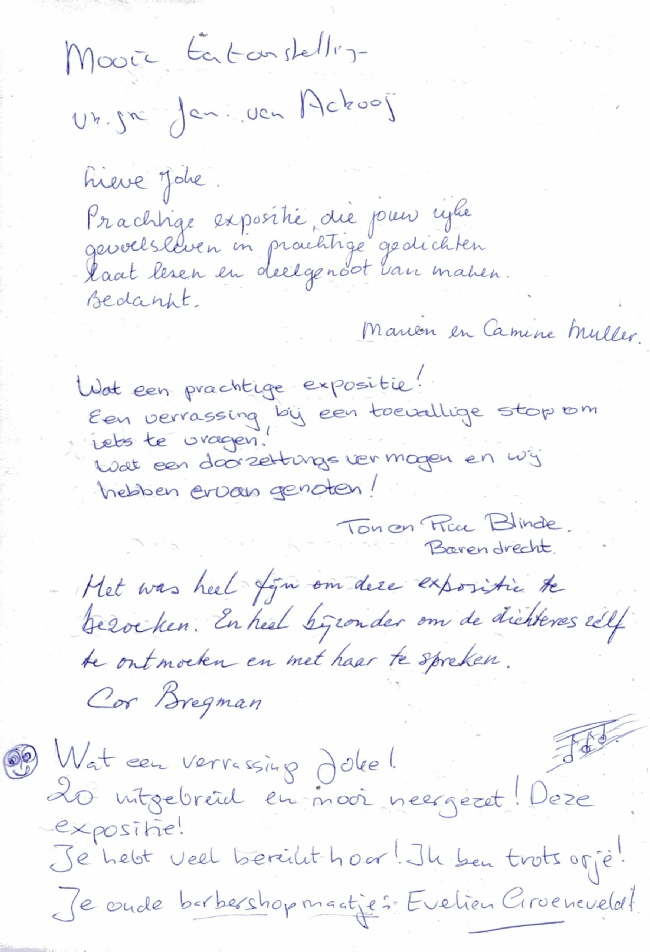 Mooie tentonstelling
vr. gr. Jan van Ackooij
Lieve Joke.
Prachtige expositie, die jouw rijke
gevoelsleven in prachtige gedichten
laat lezen en deelgenoot van maken.
Bedankt.
Marien en Camine Muller.
Wat een prachtige expositie!
Een verrassing bij een toevallige stop om
iets te vragen!
Wat een doorzettingsvermogen en wij
hebben ervan genoten!
Ton en Blinde.
Barendrecht.
Het was heel fijn om deze expositie te
bezoeken. En heel bijzonder om de dichteres zélf
te ontmoeten en met haar te spreken.
Cor Bregman
Wat een verrassing Joke!
Zo uitgebreid en mooi neergezet! Deze
expositie!
Je hebt veel bereikt hoor! Ik ben trots op je!
Je oude barbershopmaatje: Evelien Groeneveld!